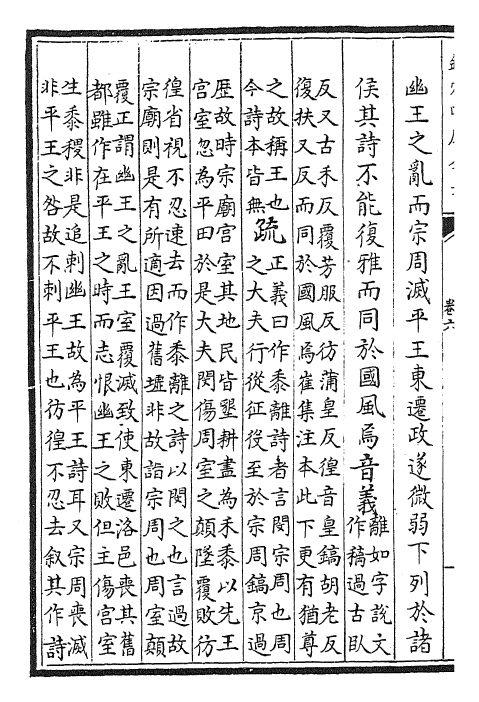 幽王之亂而宗周滅平王東遷政遂微弱下列於諸
侯其詩不能復雅而同於國風焉音義
離如字說文
作稿過古臥
反又古禾反覆芳服反彷蒲皇反徨音皇鎬胡老反
復扶又反而同於國風焉崔集注本此下更有猶尊
之故稱王也
今詩本皆無
疏
正義曰作黍離詩者言閔宗周也周
之大夫行從征役至於宗周鎬京過
歴故時宗廟宫室其地民皆墾耕盡為禾黍以先王
宫室忽為平田於是大夫閔傷周室之顛墜覆敗彷
徨省視不忍速去而作黍離之詩以閔之也言過故
宗廟則是有所適因過舊墟非故詣宗周也周室顛
覆正謂幽王之亂王室覆滅致使東遷洛邑喪其舊
都雖作在平王之時而志恨幽王之敗但主傷宫室
生黍稷非是追刺幽王故為平王詩耳又宗周喪滅
非平王之咎故不刺平王也彷徨不忍去叙其作詩
卷六